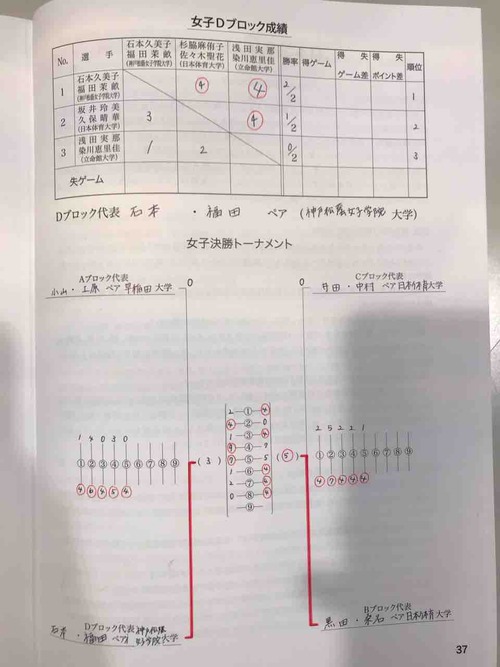 女子Dブロック成績
No. 選手 石本久美子 福田茉畝 杉脇麻侑子 佐々木聖花 (日本体育大学) 浅田実那 染川恵里佳 (立命館大学) 勝率 得ゲーム 得失ゲーム差 得失ポイント差 順位
1 石本久美子 福田茉畝 ④ ④ 2/2 1
2 坂井玲美 久保晴華 (日本体育大学) 3 ④ 1/2 2
3 浅田実那 染川恵里佳 (立命館大学) 1 2 0/2 3
失ゲーム
Dブロック代表 石本・福田 ペア (神戸松蔭女子学院 大学)
女子決勝トーナメント
Aブロック代表 0 0 Cブロック代表
小山・上原 ペア 早稲田大学
中村 ペア 日本体育大学
2 ① ④
④ ② 0
1 ③ ④
④ ⑦
1 4 0 3 0 (3) ⑦ ⑤ 5 (⑤) 2 5 2 2 1
① ② ③ ④ ⑤ ⑥ ⑦ ⑧ ⑨ 1 ⑥ ④ ① ② ③ ④ ⑤ ⑥ ⑦ ⑧ ⑨
④ ⑥ ④ ⑤ ④ 2 ⑦ ④ ⑦ ④ ④ ④
0 ⑧ ④
⑨
Dブロック代表 Bブロック代表
石本・福田 ペア 神戸松蔭女子学院大学
黒田・ ペア 日本体育大学
37